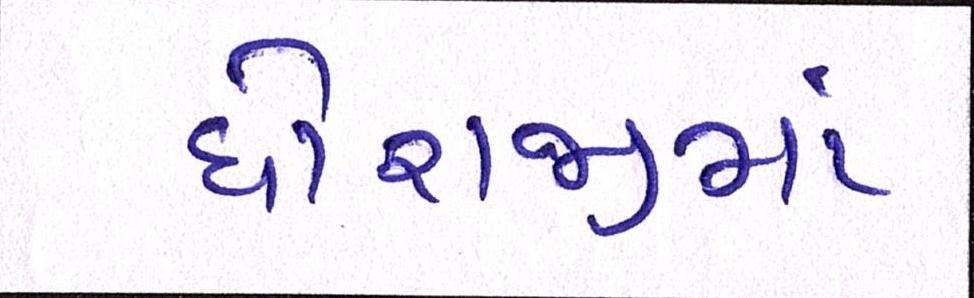 ધોરાજીમાં